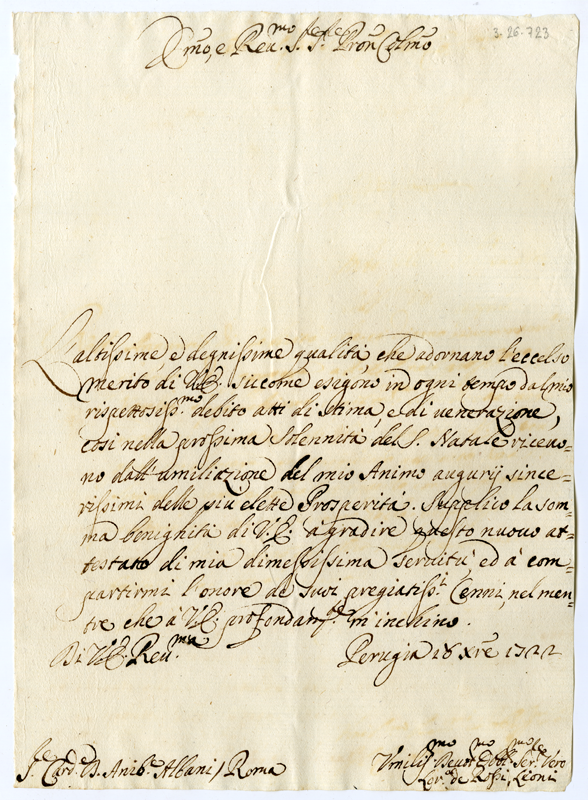 3. 26. 723
Emo, e Reu.mo S.re S.re Pron Colmo
L'altissime, e degnissime qualità che adornano l'eccelso
merito di V.E. siccome esigono in ogni tempo dal mio
rispettosiss.mo debito atti di stima, e di venerazione,
così nella prossima solennità del S. Natale riceuo-
no dall'umiliazione del mio Animo augurij since-
rissimi delle più elette Prosperità. Supplico la som-
ma benignità di V.E. à gradire questo nuouo at-
testato di mia dimessissima seruitù, ed à com-
partirmi l'onore de suoi pregiatiss.i Cenni, nel men-
tre che à V.E. profondam.te m'inchino.
Di V.E. Reu.ma
Perugia 18 Xre 1722
S.e Card. D. Anib.e Albani / Roma
Umiliss.mo Deuot.mo Obb.mo Ser.re Vero
de Rossi, Lioni